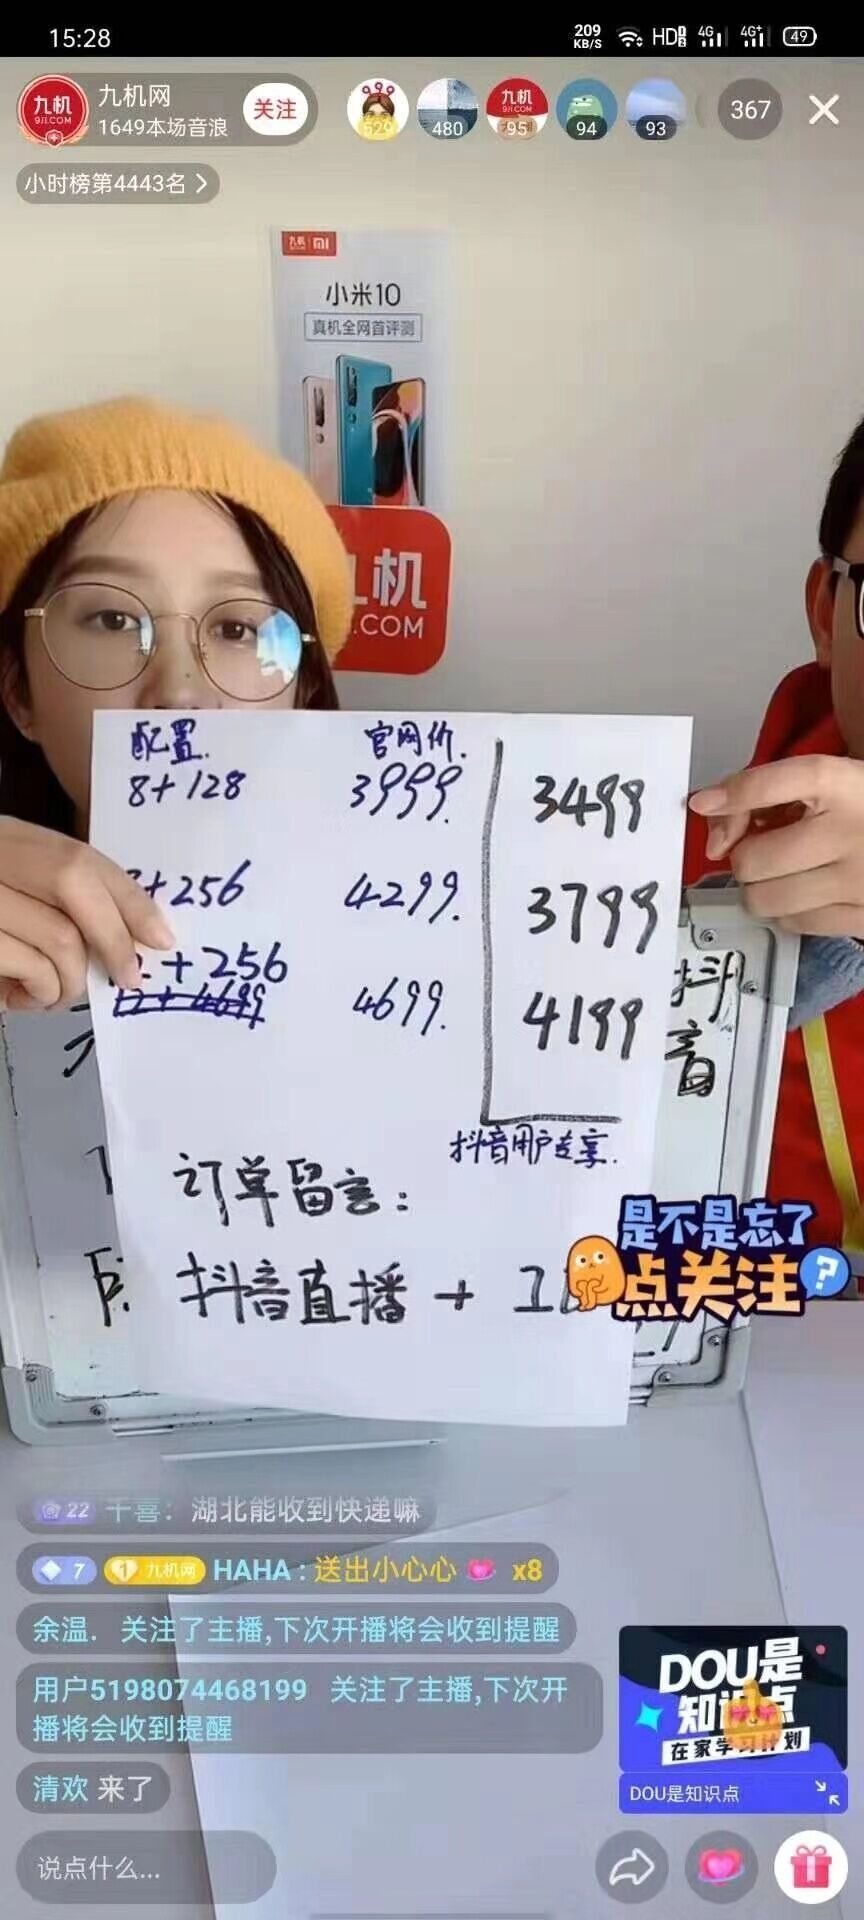 15:28
209 KB/S HD 4G 4G+ 49
九机 9JI.COM
九机网
1649本场音浪
关注
529 480 95 94 93 367
九机 9JI.COM
小时榜第4443名
九机 mi
小米10
真机全网首评测
机
.COM
配置. 官网价.
8+128 3999. 3499
+256 4299. 3799
+256
12+4699 4699. 4199
抖音
抖音用户专享.
订单留言:
抖音直播 +
是不是忘了
点关注?
22 千喜: 湖北能收到快递嘛
7 1 九机网 HAHA : 送出小心心 x8
余温. 关注了主播,下次开播将会收到提醒
用户5198074468199 关注了主播,下次开
播将会收到提醒
清欢 来了
DOU是
知识点
在家学习计划
DOU是知识点
说点什么...